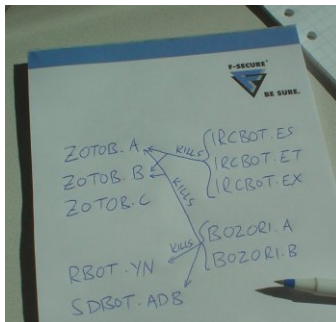 F-SECURE
BE SURE.
ZOTOB.A
ZOTOB.B
ZOTOB.C
KILLS
IRCBOT.ES
IRCBOT.ET
IRCBOT.EX
KILLS
KILLS
BOZORI.A
BOZORI.B
RBOT.YN
SDBOT.ADB